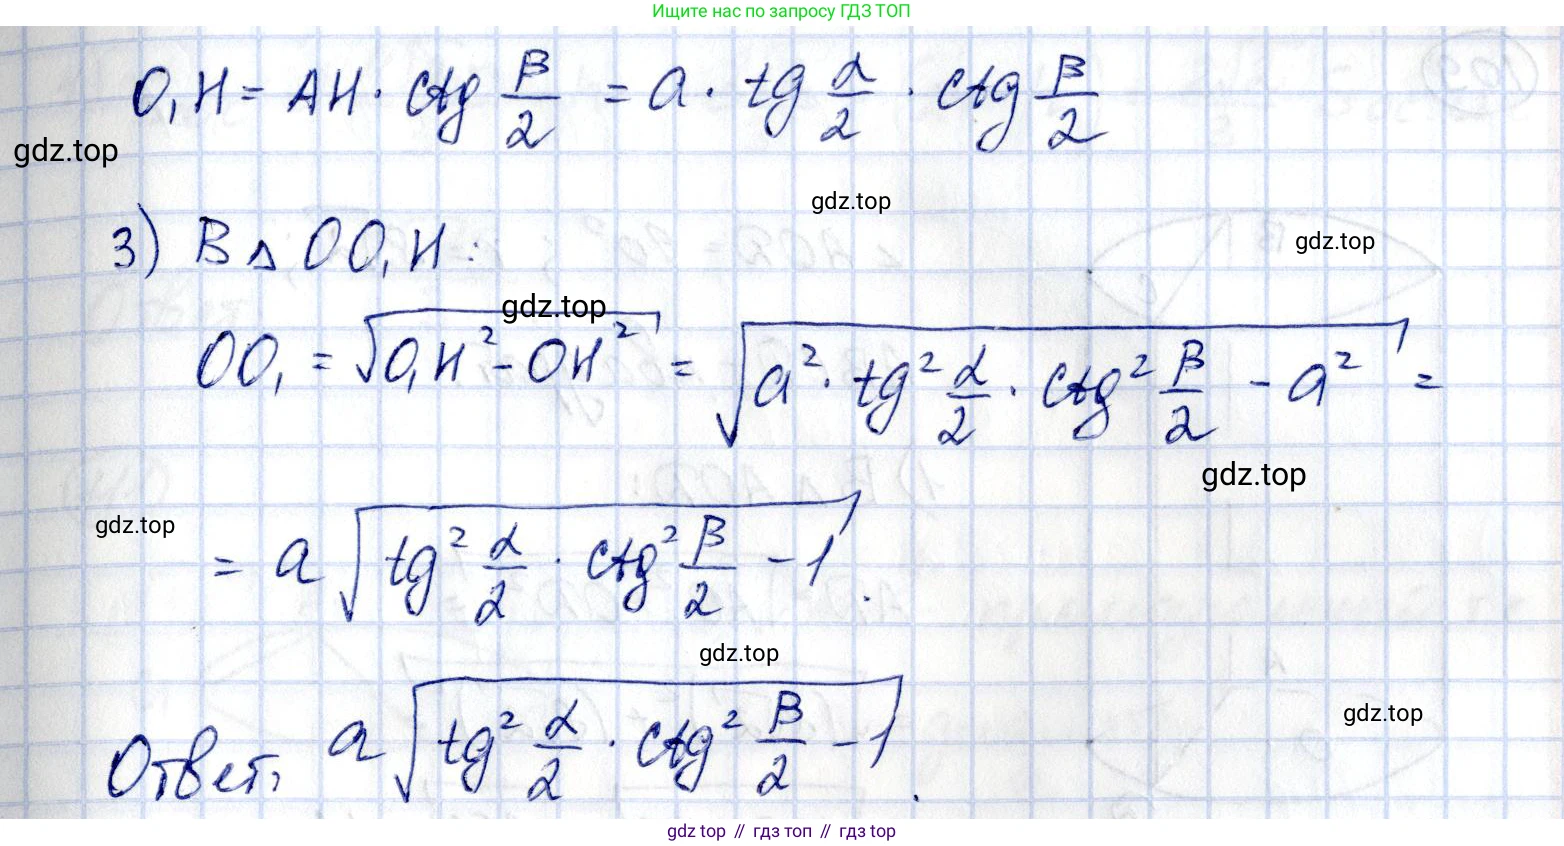 Ищите нас по запросу ГДЗ ТОП
O₁H = AH · ctg β/2 = a · tg α/2 · ctg β/2
gdz.top
gdz.top
3) В △ OO₁H :
gdz.top
gdz.top
OO₁ = √(O₁H² - OH²) = √(a² · tg² α/2 · ctg² β/2 - a²) =
gdz.top
gdz.top
= a √(tg² α/2 · ctg² β/2 - 1) .
gdz.top
gdz.top
Ответ: a √(tg² α/2 · ctg² β/2 - 1) .
gdz top // гдз топ // гдз top